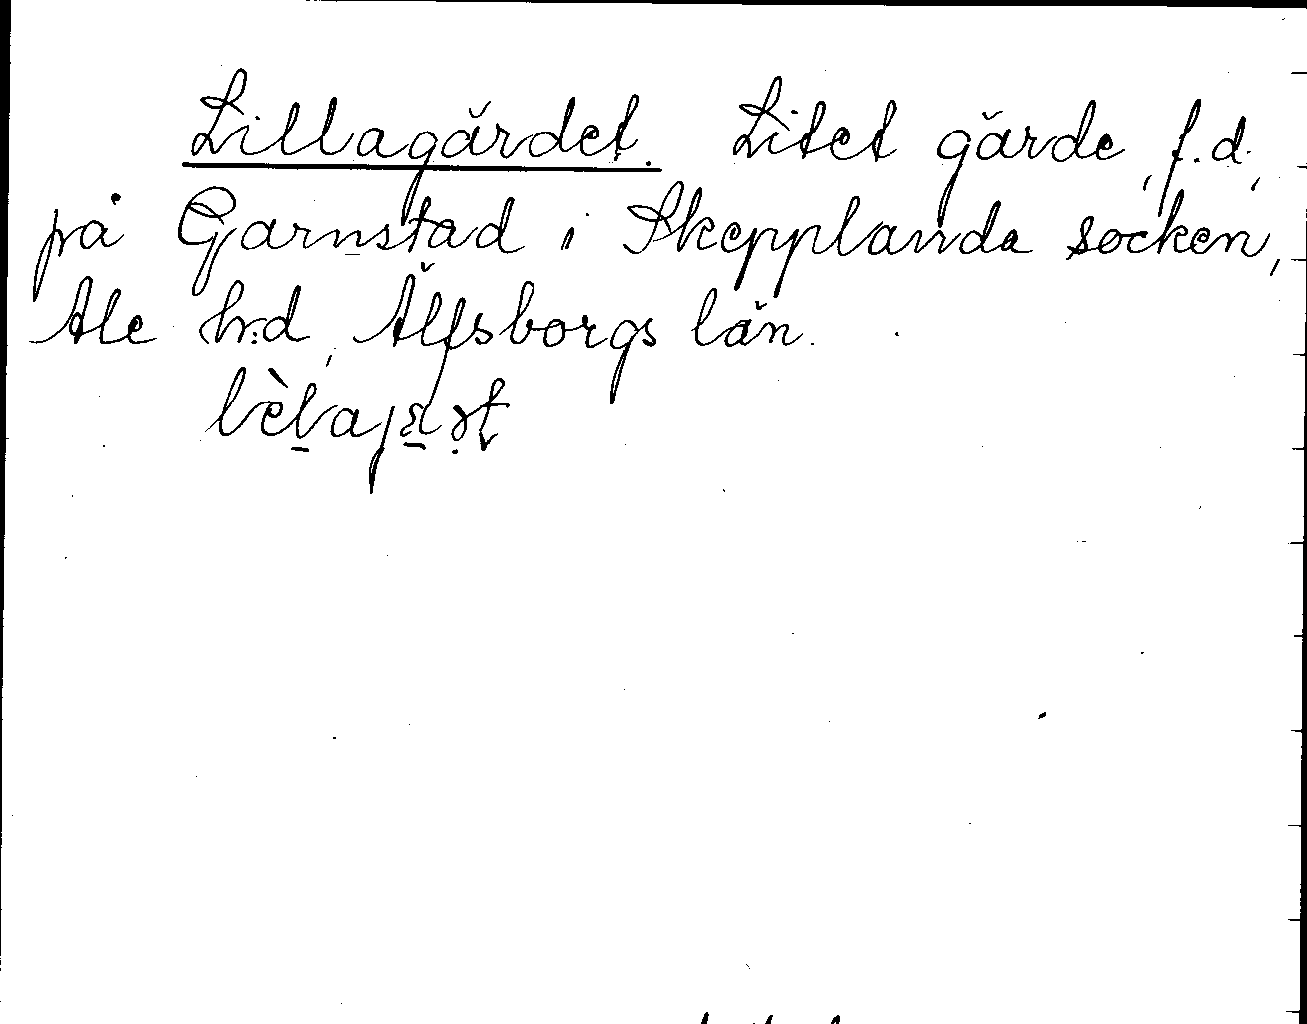 Lillagärdet. Litet gärde, f.d.,
på Garnstad i Skepplanda socken,
Ale h:d, Älfsborgs län.